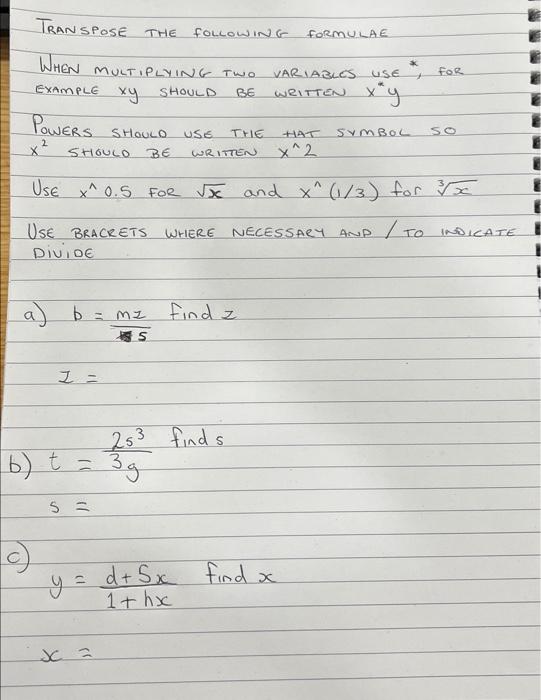 TRANSPOSE THE FOLLOWING FORMULAE
WHEN MULTIPLYING TWO VARIABLES USE *, FOR
EXAMPLE xy SHOULD BE WRITTEN x*y
POWERS SHOULD USE THE HAT SYMBOL SO
x² SHOULD BE WRITTEN x^2
USE x^0.5 FOR √x and x^(1/3) for ∛x
USE BRACKETS WHERE NECESSARY AND / TO INDICATE
DIVIDE
a) b = mz/s find z
z =
b) t = 2s³/3g find s
s =
c)
y = (d+5x)/(1+hx) find x
x =